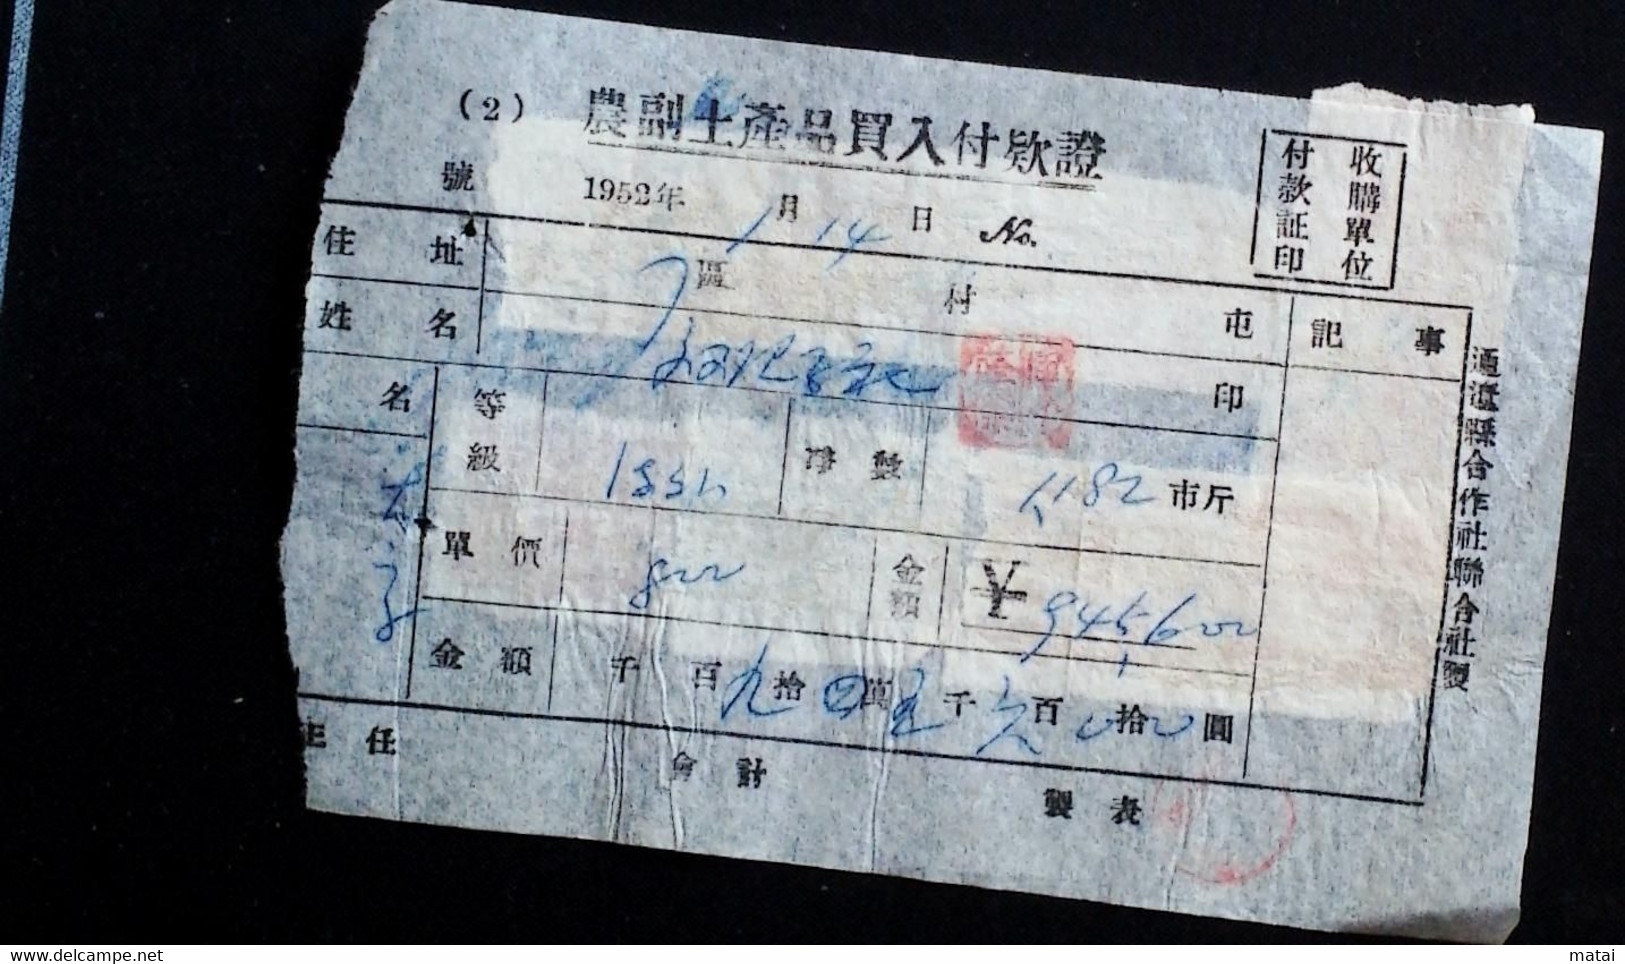 (2) 農副土產品買入付欵證
號 1952年 1月 14日 No.
付款証印
收購單位
住址 區 村 屯
記事
姓名 印
名 等級 淨數 1182 市斤
單價 800 金額 ¥ 945600
金額 千 百 九拾 四萬 五千 六百 00拾 0圓
主任 會計 製表
縣合作社聯合社製
matai